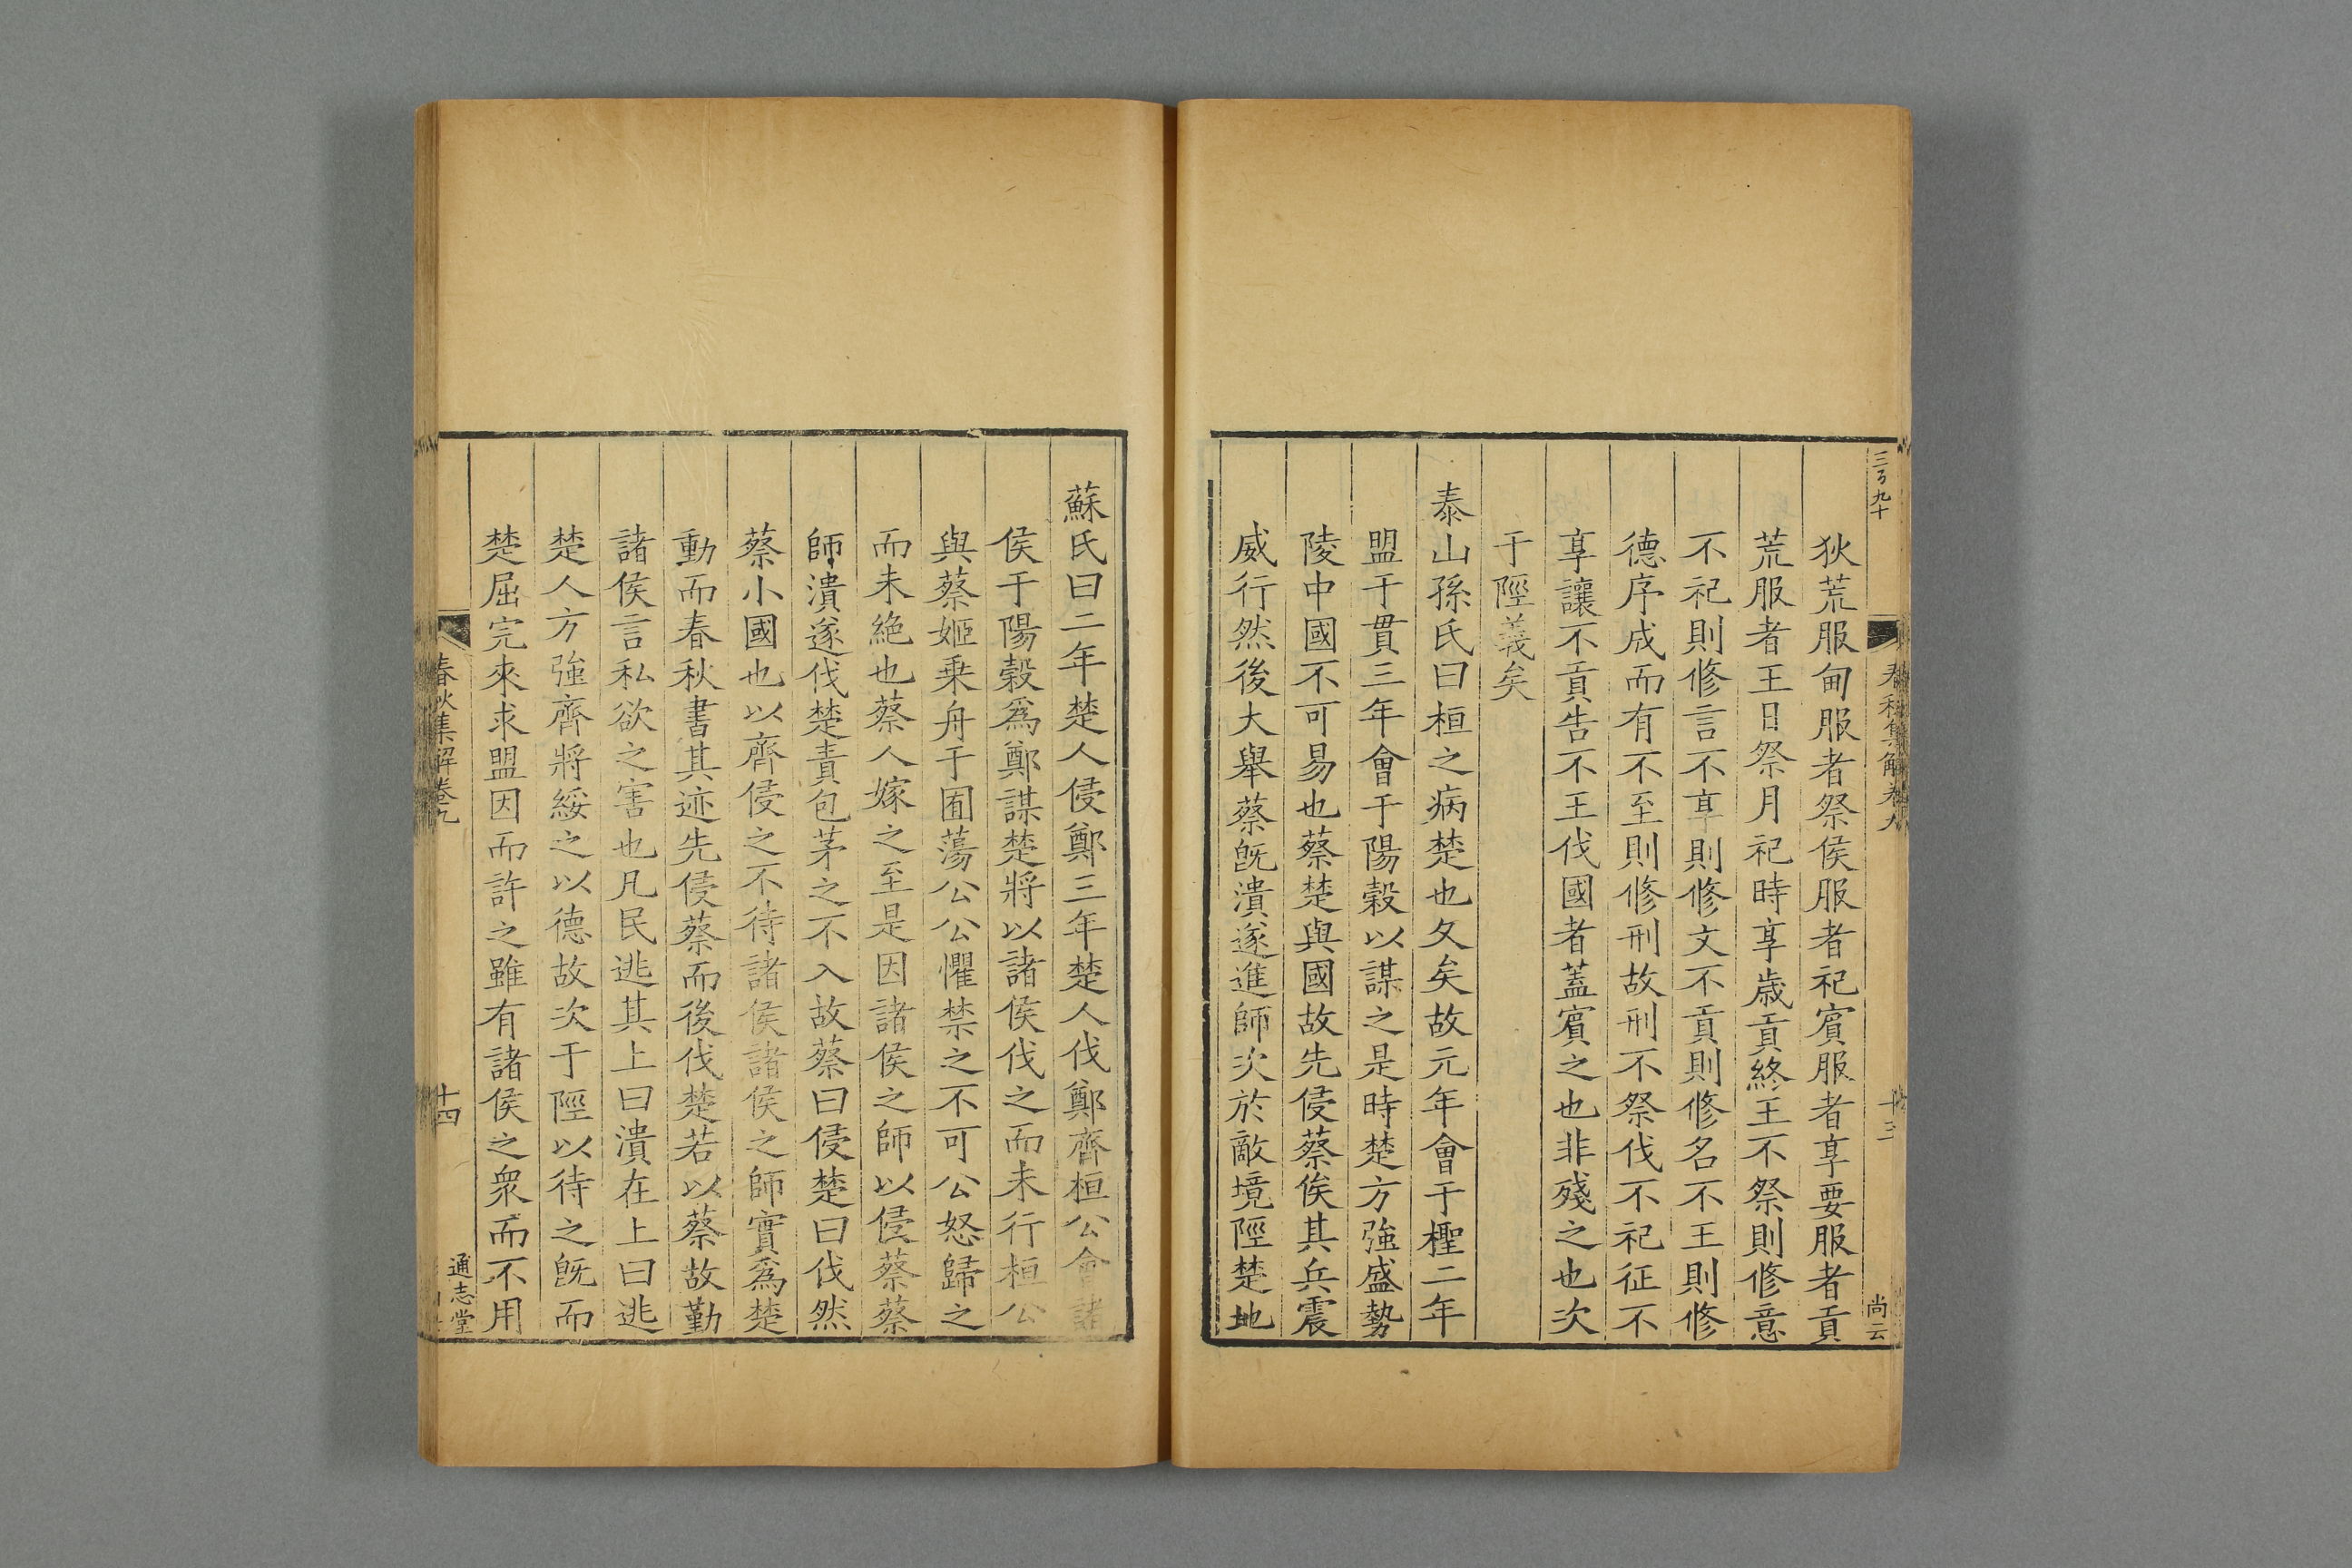 三百九十
春秋集解卷九
十三
尚云
狄荒服甸服者祭侯服者祀賓服者享要服者貢
荒服者王日祭月祀時享歲貢終王不祭則修意
不祀則修言不享則修文不貢則修名不王則修
德序成而有不至則修刑故刑不祭伐不祀征不
享讓不貢告不王伐國者蓋賓之也非殘之也次
于陘義矣
泰山孫氏曰桓之病楚也久矣故元年會于檉二年
盟于貫三年會于陽穀以謀之是時楚方強盛勢
陵中國不可易也蔡楚與國故先侵蔡俟其兵震
威行然後大舉蔡旣潰遂進師次於敵境陘楚地
蘇氏曰二年楚人侵鄭三年楚人伐鄭齊桓公會諸
侯于陽穀爲鄭謀楚將以諸侯伐之而未行桓公
與蔡姬乗舟于囿蕩公公懼禁之不可公怒歸之
而未絶也蔡人嫁之至是因諸侯之師以侵蔡蔡
師潰遂伐楚責包茅之不入故蔡曰侵楚曰伐然
蔡小國也以齊侵之不待諸侯諸侯之師實爲楚
動而春秋書其迹先侵蔡而後伐楚若以蔡故勤
諸侯言私欲之害也凡民逃其上曰潰在上曰逃
楚人方強齊將綏之以德故次于陘以待之旣而
楚屈完來求盟因而許之雖有諸侯之衆而不用
春秋集解卷九
十四
通志堂